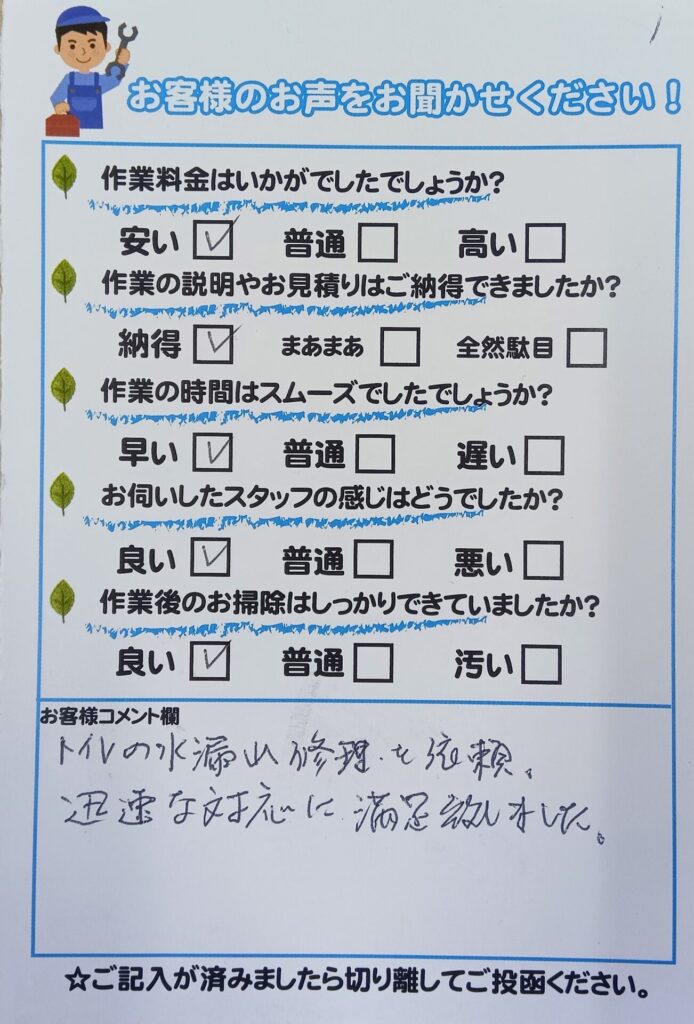 お客様のお声をお聞かせください!
作業料金はいかがでしたでしょうか?
安い 普通 高い
作業の説明やお見積りはご納得できましたか?
納得 まあまあ 全然駄目
作業の時間はスムーズでしたでしょうか?
早い 普通 遅い
お伺いしたスタッフの感じはどうでしたか?
良い 普通 悪い
作業後のお掃除はしっかりできていましたか?
良い 普通 汚い
お客様コメント欄
トイレの水漏れ修理を依頼。
迅速な対応に満足致しました。
☆ご記入が済みましたら切り離してご投函ください。